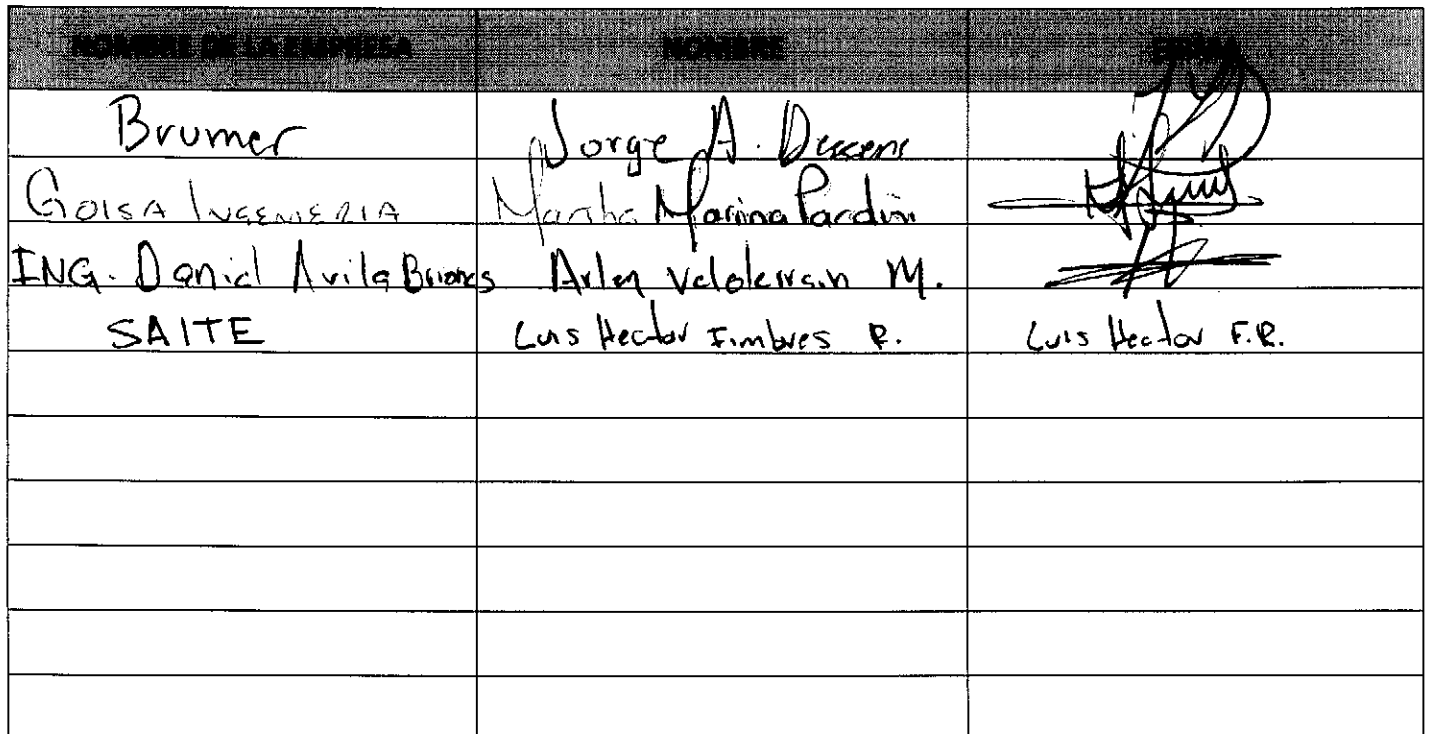 NOMBRE DE LA EMPRESA NOMBRE FIRMA
Brumer Jorge A.
GOISA INGENIERIA Martha Marina Pardini
ING. Daniel Avila Briones M.
SAITE Luis Hector Fimbres R. Luis Hector F.R.